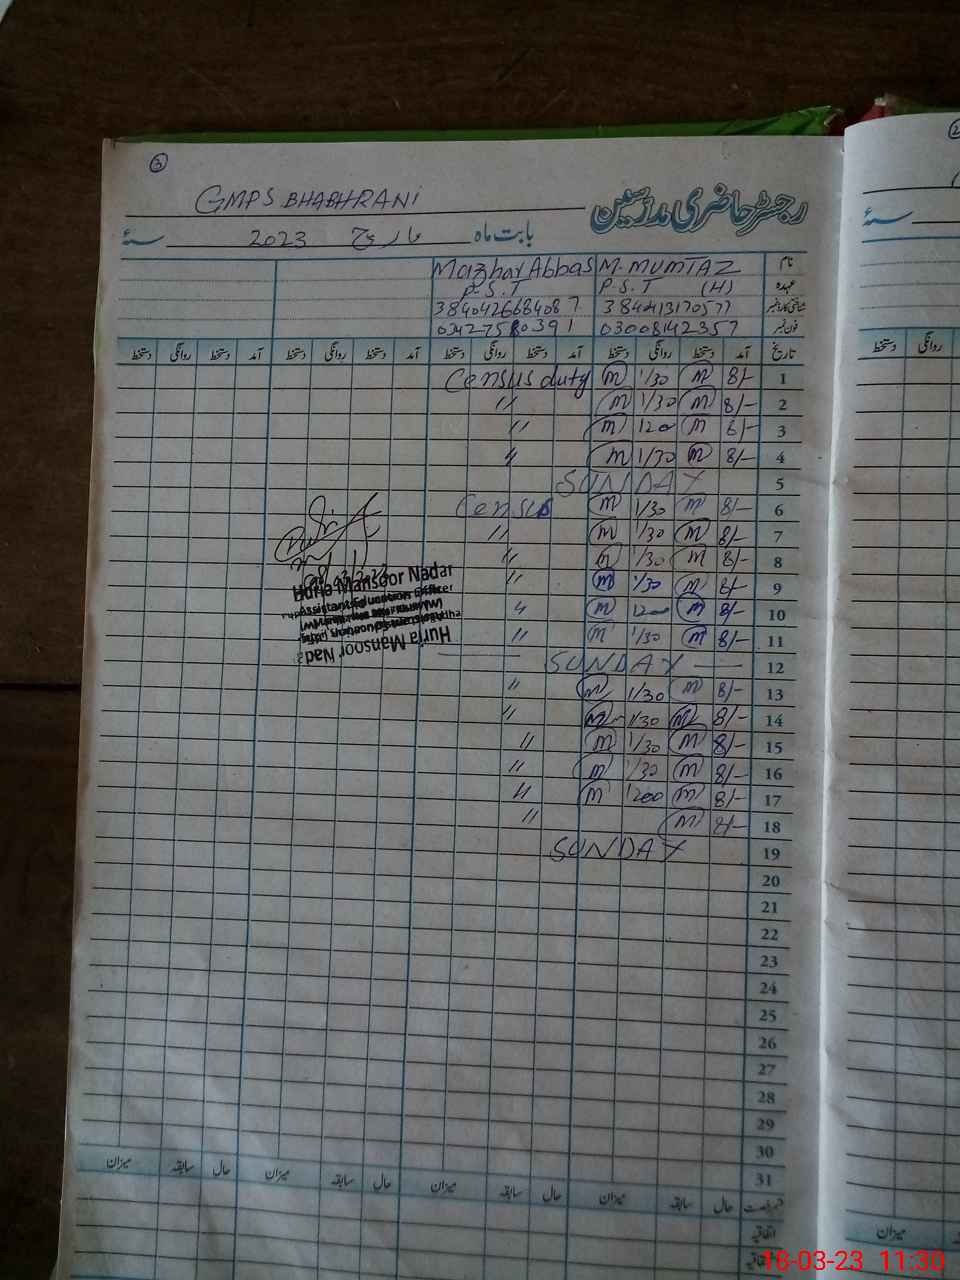 3
GMPS BHABHRANI
رجسٹر حاضری مدرسین
بابت ماہ مارچ 2023 سنہ
نام M. MUMTAZ Mazhar Abbas
عہدہ P.S.T (H) P.S.T
شناختی کارڈ نمبر
فون نمبر 03008142357
تاریخ آمد دستخط روانگی دستخط آمد دستخط روانگی دستخط آمد دستخط روانگی دستخط آمد دستخط روانگی دستخط
1 8/- m 1/30 m Census duty
2 8/- m 1/30 m "
3 8/- m 1200 m "
4 8/- m 1/30 m "
5 SUNDAY
6 8/- m 1/30 m Census
7 8/- m 1/30 m "
8 8/- m 1/30 m "
9 8/- m 1/30 m "
10 8/- m 1200 m "
11 8/- m 1/30 m "
12 SUNDAY
13 8/- m 1/30 m "
14 8/- m 1/30 m "
15 8/- m 1/30 m "
16 8/- m 1/30 m "
17 8/- m 1200 m "
18 8/- m "
19 SUNDAY
20
21
22
23
24
25
26
27
28
29
30
31
Huria Mansoor Nadar
Assistant Education Officer
Huria Mansoor Nad
حال سابقہ میزان حال سابقہ میزان حال سابقہ میزان حال سابقہ میزان
اتفاقیہ
2
سنہ
روانگی دستخط
میزان
18-03-23 11:30